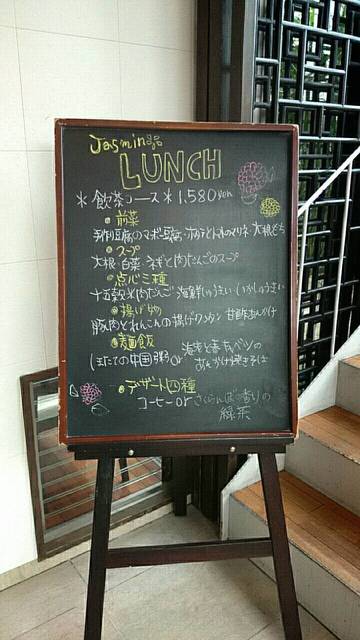 Jasmin
LUNCH
＊飲茶コース＊1,580yen
前菜
手作豆腐のマーボ豆腐・ホタテとれんこんのマリネ・大根もち
スープ
大根・白菜・ネギと肉だんごのスープ
点心三種
十五穀米肉だんご 海鮮しゅうまい・いかしゅうまい
揚げ物
豚肉とれんこんの揚げワンタン 甘酢あんかけ
麺飯
ほたての中国粥 or 海老と春キャベツの
あんかけ焼きそば
デザート四種
コーヒー or さくらんぼの香りの
緑茶